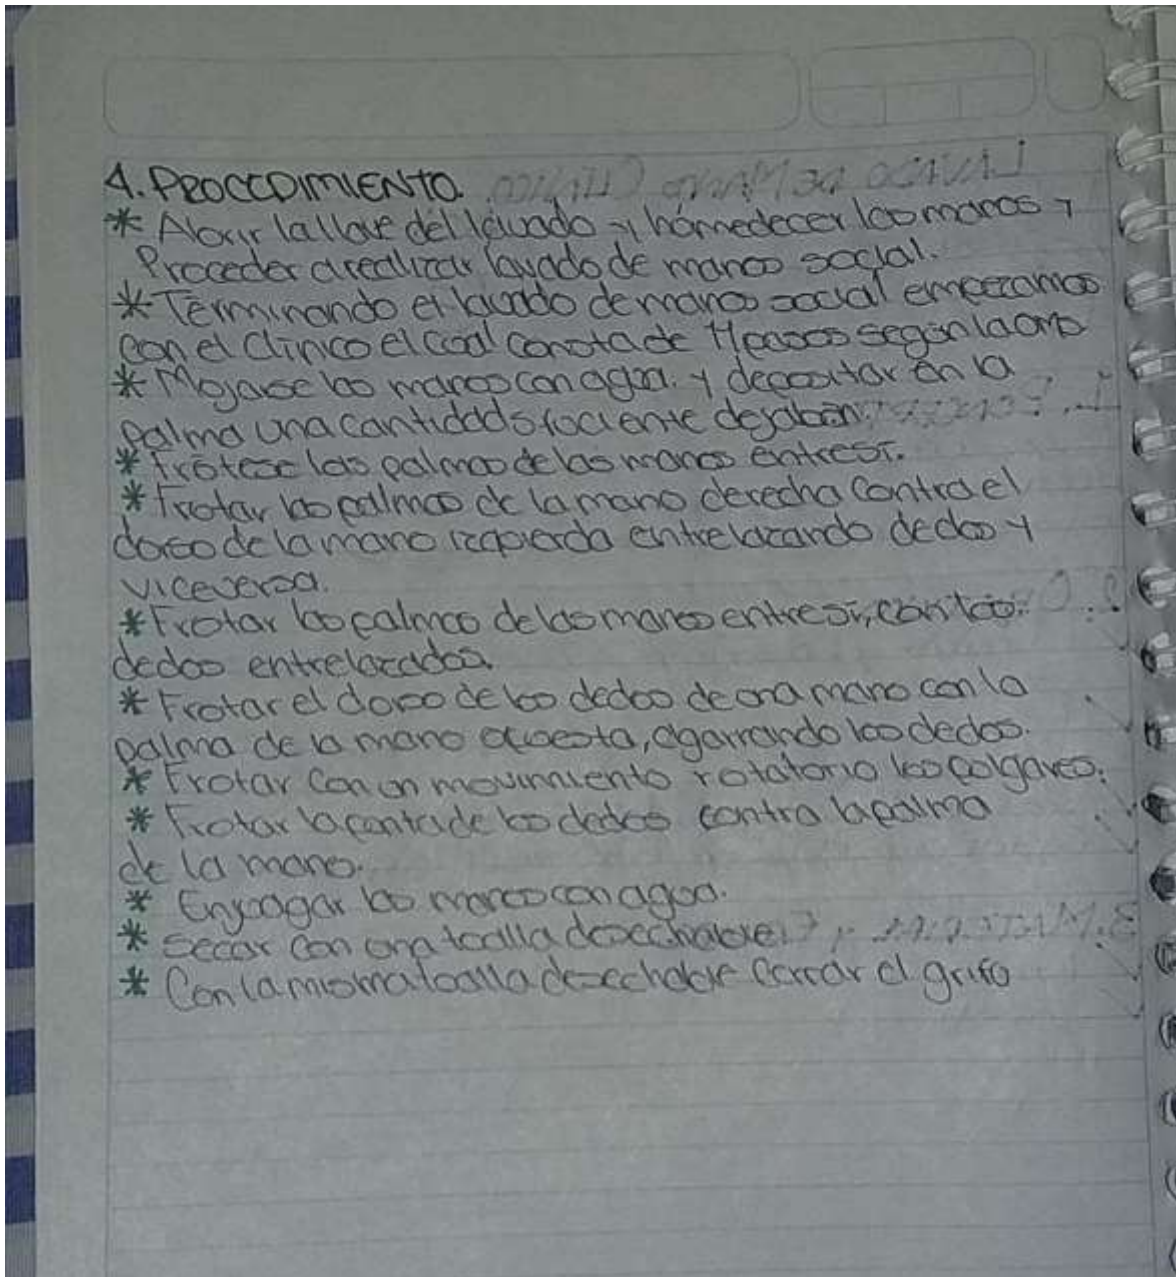 4. PROCEDIMIENTO.
* Abrir la llave del lavado y húmedecer las manos y
Proceder a realizar lavado de manos social.
* Términando el lavado de manos social empezamos
con el clinco el cual consta de 11 pasos según la oms
* Mojarse las manos con agua. y depositar en la
palma una cantidad suficiente de jabón
* Frótese las palmas de las manos entre sí.
* Frotar las palmas de la mano derecha contra el
dorso de la mano izquierda entrelazando dedos y
viceversa.
* Frotar las palmas de las manos entre sí, con los
dedos entrelazados.
* Frotar el dorso de los dedos de una mano con la
palma de la mano opuesta, agarrando los dedos.
* Frotar con un movimiento rotatorio los pulgares.
* Frotar la punta de los dedos contra la palma
de la mano.
* Enjuagar las manos con agua.
* Secar con una toalla desechable.
* Con la misma toalla desechable cerrar el grifo